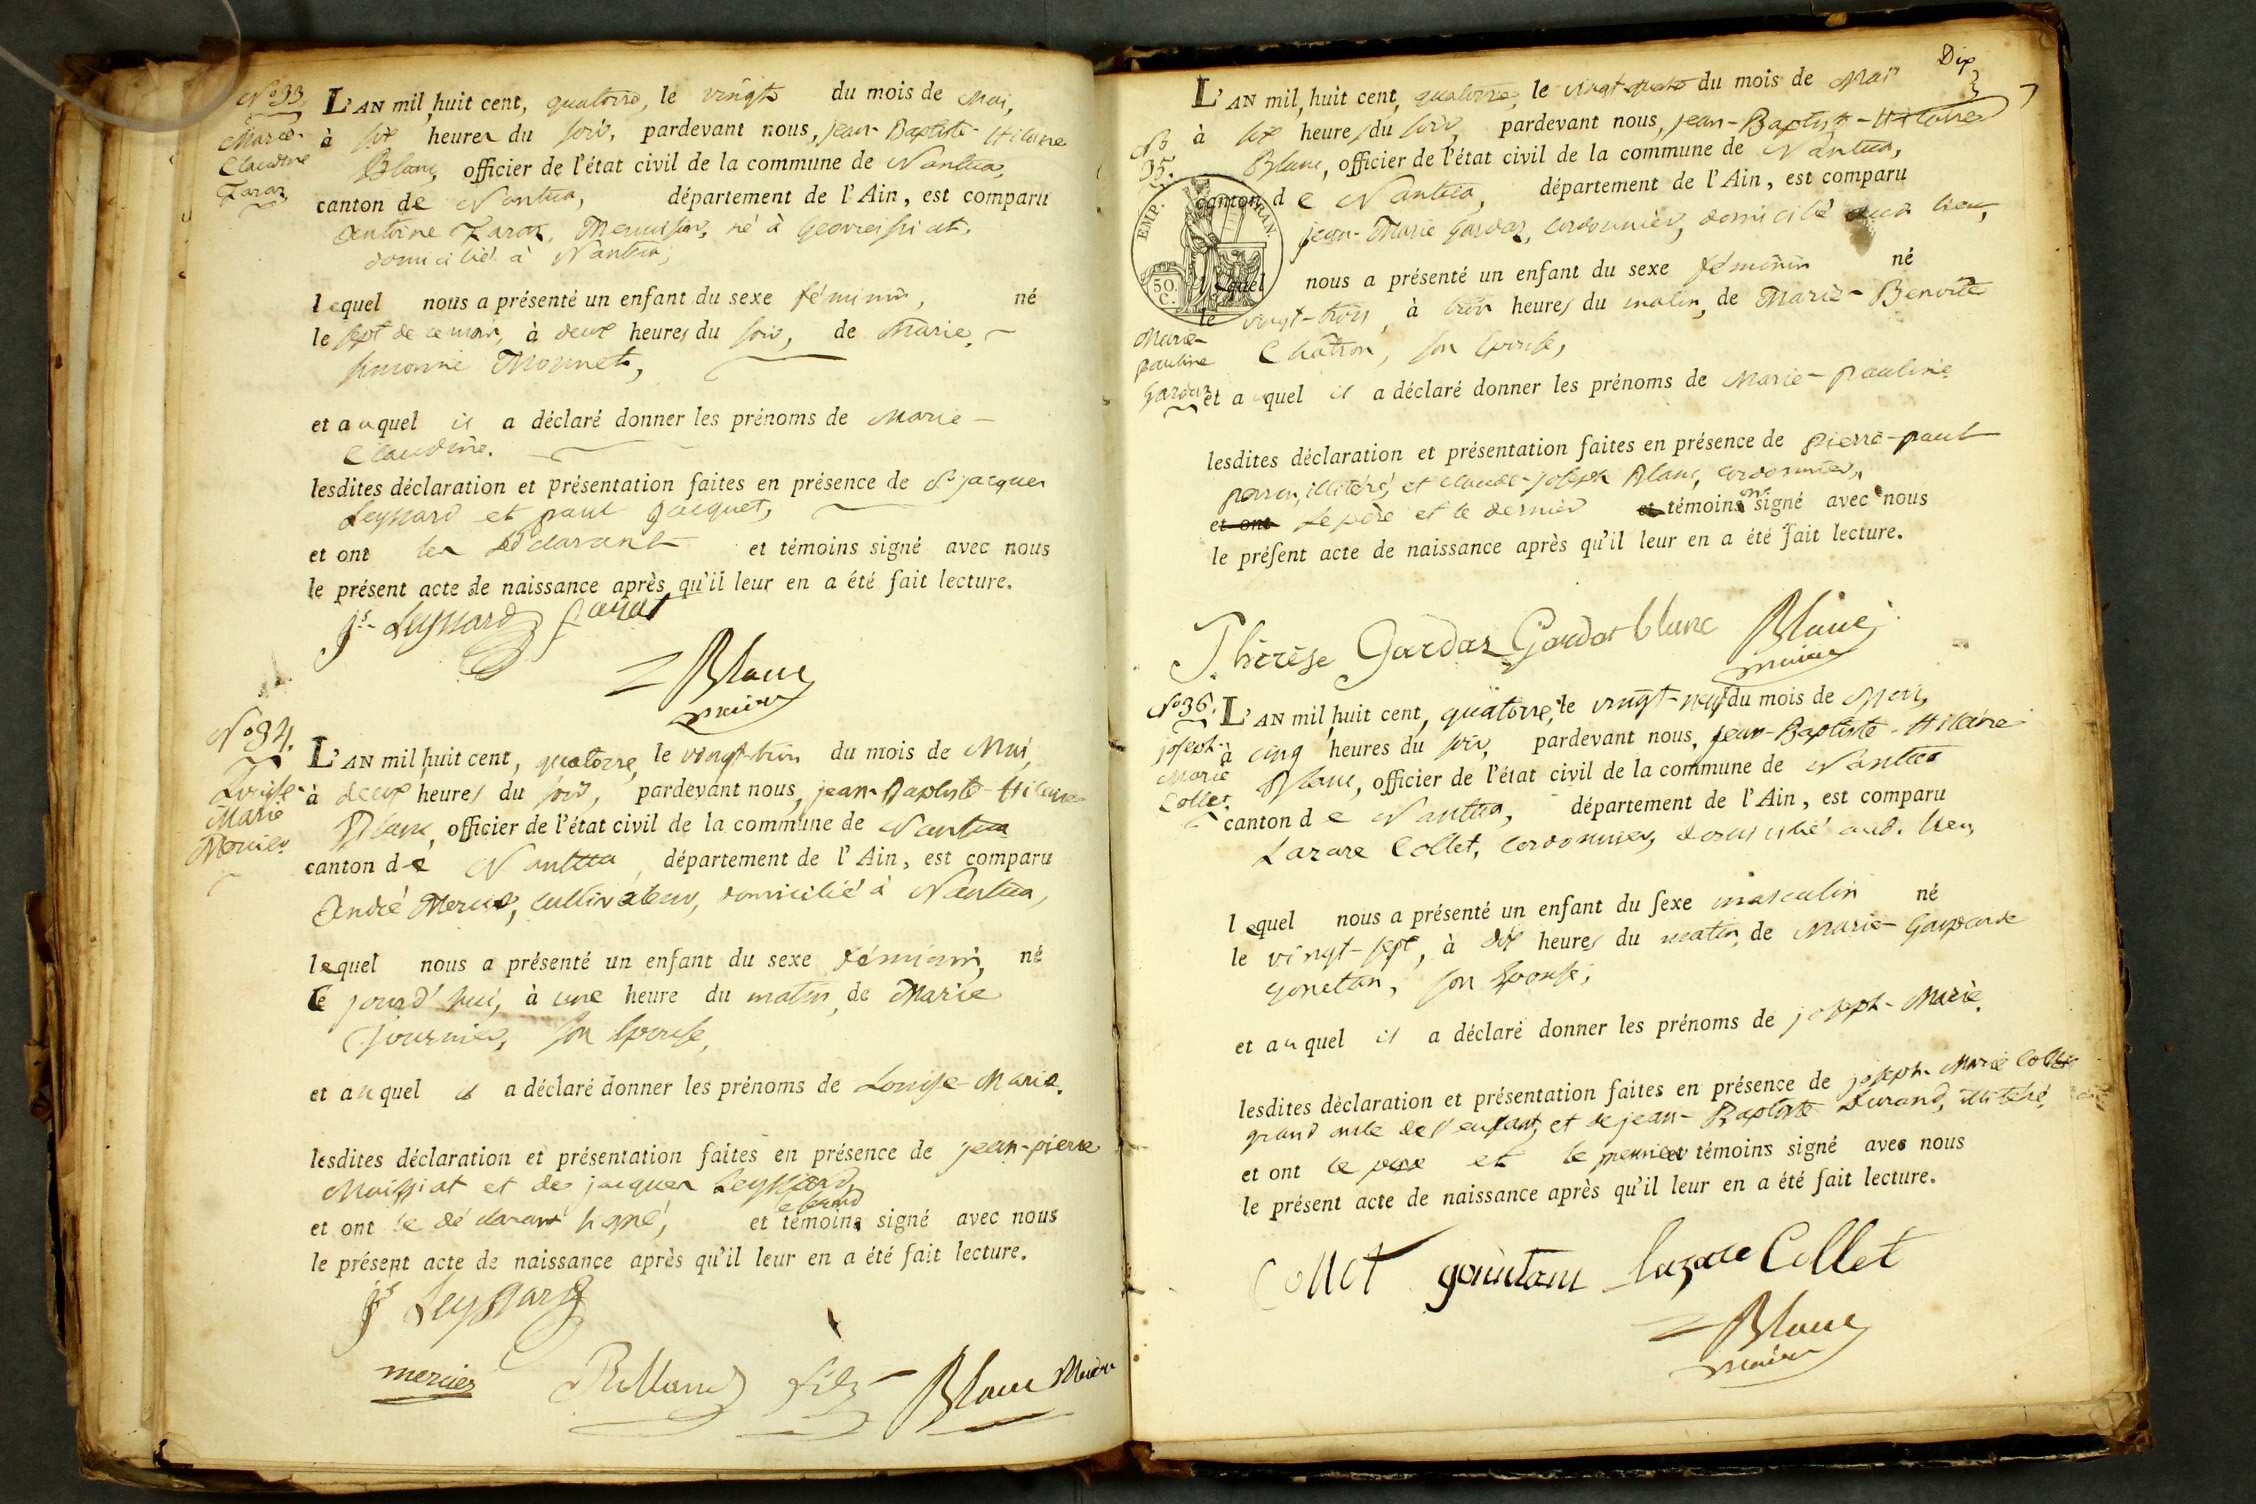 N°. 33.
Marie-
Claudine
Zaroz
L'AN mil huit cent, quatorze, le vingt du mois de Mai,
à six heures du soir, pardevant nous, jean-Baptiste-Hilaire
Blanc, officier de l'état civil de la commune de Nantua,
canton de Nantua, département de l'Ain, est comparu
Antoine Zaroz, Menuisier, né à Geovreissiat,
domicilié à Nantua,
lequel nous a présenté un enfant du sexe féminin, né
le sept de ce mois, à deux heures du soir, de Marie-
simonne Monnet,
et auquel il a déclaré donner les prénoms de Marie-
Claudine.
lesdites déclaration et présentation faites en présence de Sr jacques
Leyssard et paul jacquet,
et ont les déclarant et témoins signé avec nous
le présent acte de naissance après qu'il leur en a été fait lecture.
js. Leyssard
Blanc
maire
N°. 34.
Louise-
Marie
Mercier
L'AN mil huit cent, quatorze, le vingt-trois du mois de Mai,
à deux heures du soir, pardevant nous, jean-Baptiste-Hilaire
Blanc, officier de l'état civil de la commune de Nantua
canton de Nantua, département de l'Ain, est comparu
André Mercier, cultivateur, domicilié à Nantua,
lequel nous a présenté un enfant du sexe féminin, né
le jourd'hui, à une heure du matin, de Marie
journier, son épouse,
et auquel il a déclaré donner les prénoms de Louise-Marie.
lesdites déclaration et présentation faites en présence de jean-pierre
Maissiat et de jacques Leyssard,
le second
et ont le déclarant signé, et témoins signé avec nous
le présent acte de naissance après qu'il leur en a été fait lecture.
js Leyssard
mercier fils Blanc Maire
Dix
L'AN mil huit cent, quatorze, le vingt-quatre du mois de Mai
N°
35.
à six heures du soir, pardevant nous, jean-Baptiste-Hilaire
Blanc, officier de l'état civil de la commune de Nantua,
canton de Nantua, département de l'Ain, est comparu
jean-Marie Gardaz, cordonnier, domicilié aud. lieu,
EMP. FRAN.
50.
C.
lequel nous a présenté un enfant du sexe féminin né
le vingt-trois, à trois heures du matin, de Marie-Benoite
Châtron, son épouse,
Marie-
pauline
Gardaz
et auquel il a déclaré donner les prénoms de Marie-pauline
lesdites déclaration et présentation faites en présence de pierre-paul
perron, illitéré, et claude-joseph Blanc, cordonnier,
ont
et ont le père et le dernier et témoins signé avec nous
le présent acte de naissance après qu'il leur en a été fait lecture.
Thérèse Gardaz Gardaz blanc Blanc
maire
N°. 36.
joseph-
Marie
Collet.
L'AN mil huit cent, quatorze, le vingt-neuf du mois de Mai,
à cinq heures du soir, pardevant nous, jean-Baptiste-Hilaire
Blanc, officier de l'état civil de la commune de Nantua
canton de Nantua, département de l'Ain, est comparu
Lazare Collet, cordonnier, domicilié aud. lieu,
lequel nous a présenté un enfant du sexe masculin né
le vingt-sept, à dix heures du matin, de Marie-Gasparde
gonetan, son épouse,
et auquel il a déclaré donner les prénoms de joseph-Marie.
lesdites déclaration et présentation faites en présence de joseph-Marie Collet
grand oncle de l'enfant, et de jean-Baptiste Durand, illitéré,
et ont le père et le premier et témoins signé avec nous
le présent acte de naissance après qu'il leur en a été fait lecture.
Collet lazare Collet
Blanc
maire